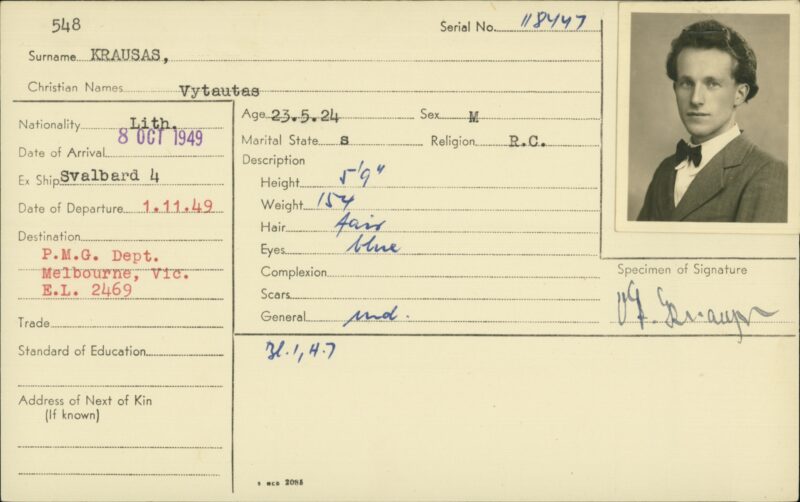 548
Serial No. 118447
Surname KRAUSAS,
Christian Names Vytautas
Nationality Lith.
Date of Arrival 8 OCT 1949
Ex Ship Svalbard 4
Date of Departure 1.11.49
Destination
P.M.G. Dept.
Melbourne, Vic.
E.L. 2469
Trade
Standard of Education
Address of Next of Kin
(If known)
Age 23.5.24 Sex M
Marital State s Religion R.C.
Description
Height 5'9"
Weight 154
Hair fair
Eyes blue
Complexion
Scars
General
Bl. 1, H.7
Specimen of Signature
2085